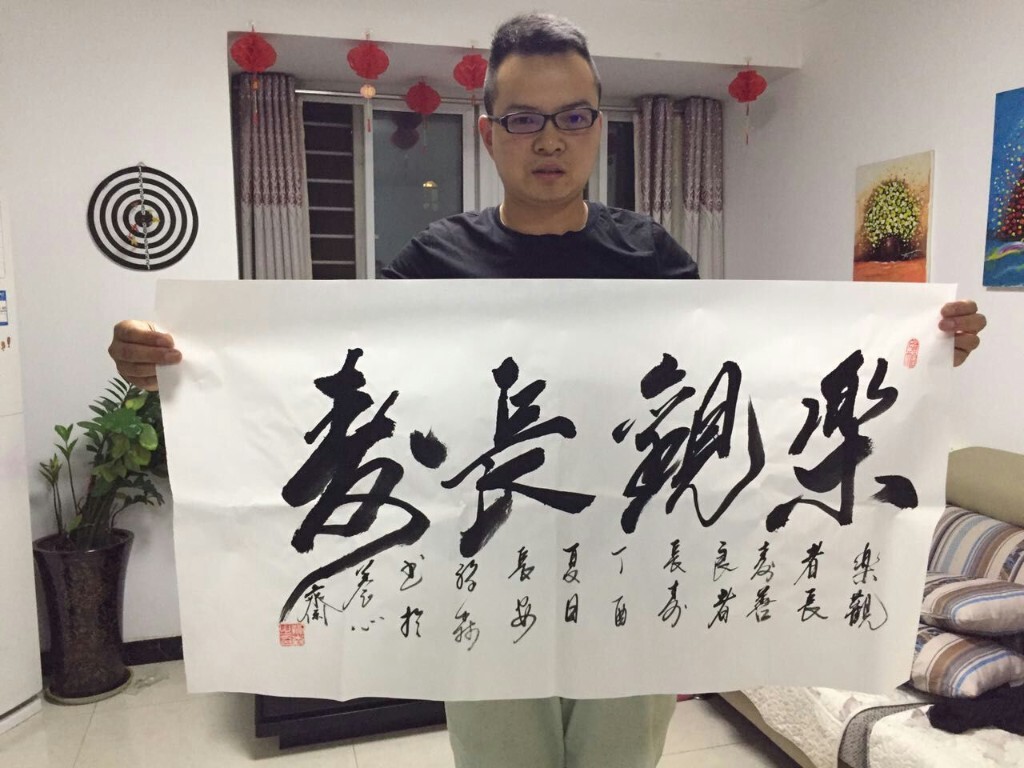 樂觀長壽
樂觀
者長
壽善
良者
長壽
丁酉
夏日
長安
书於
養心
齋